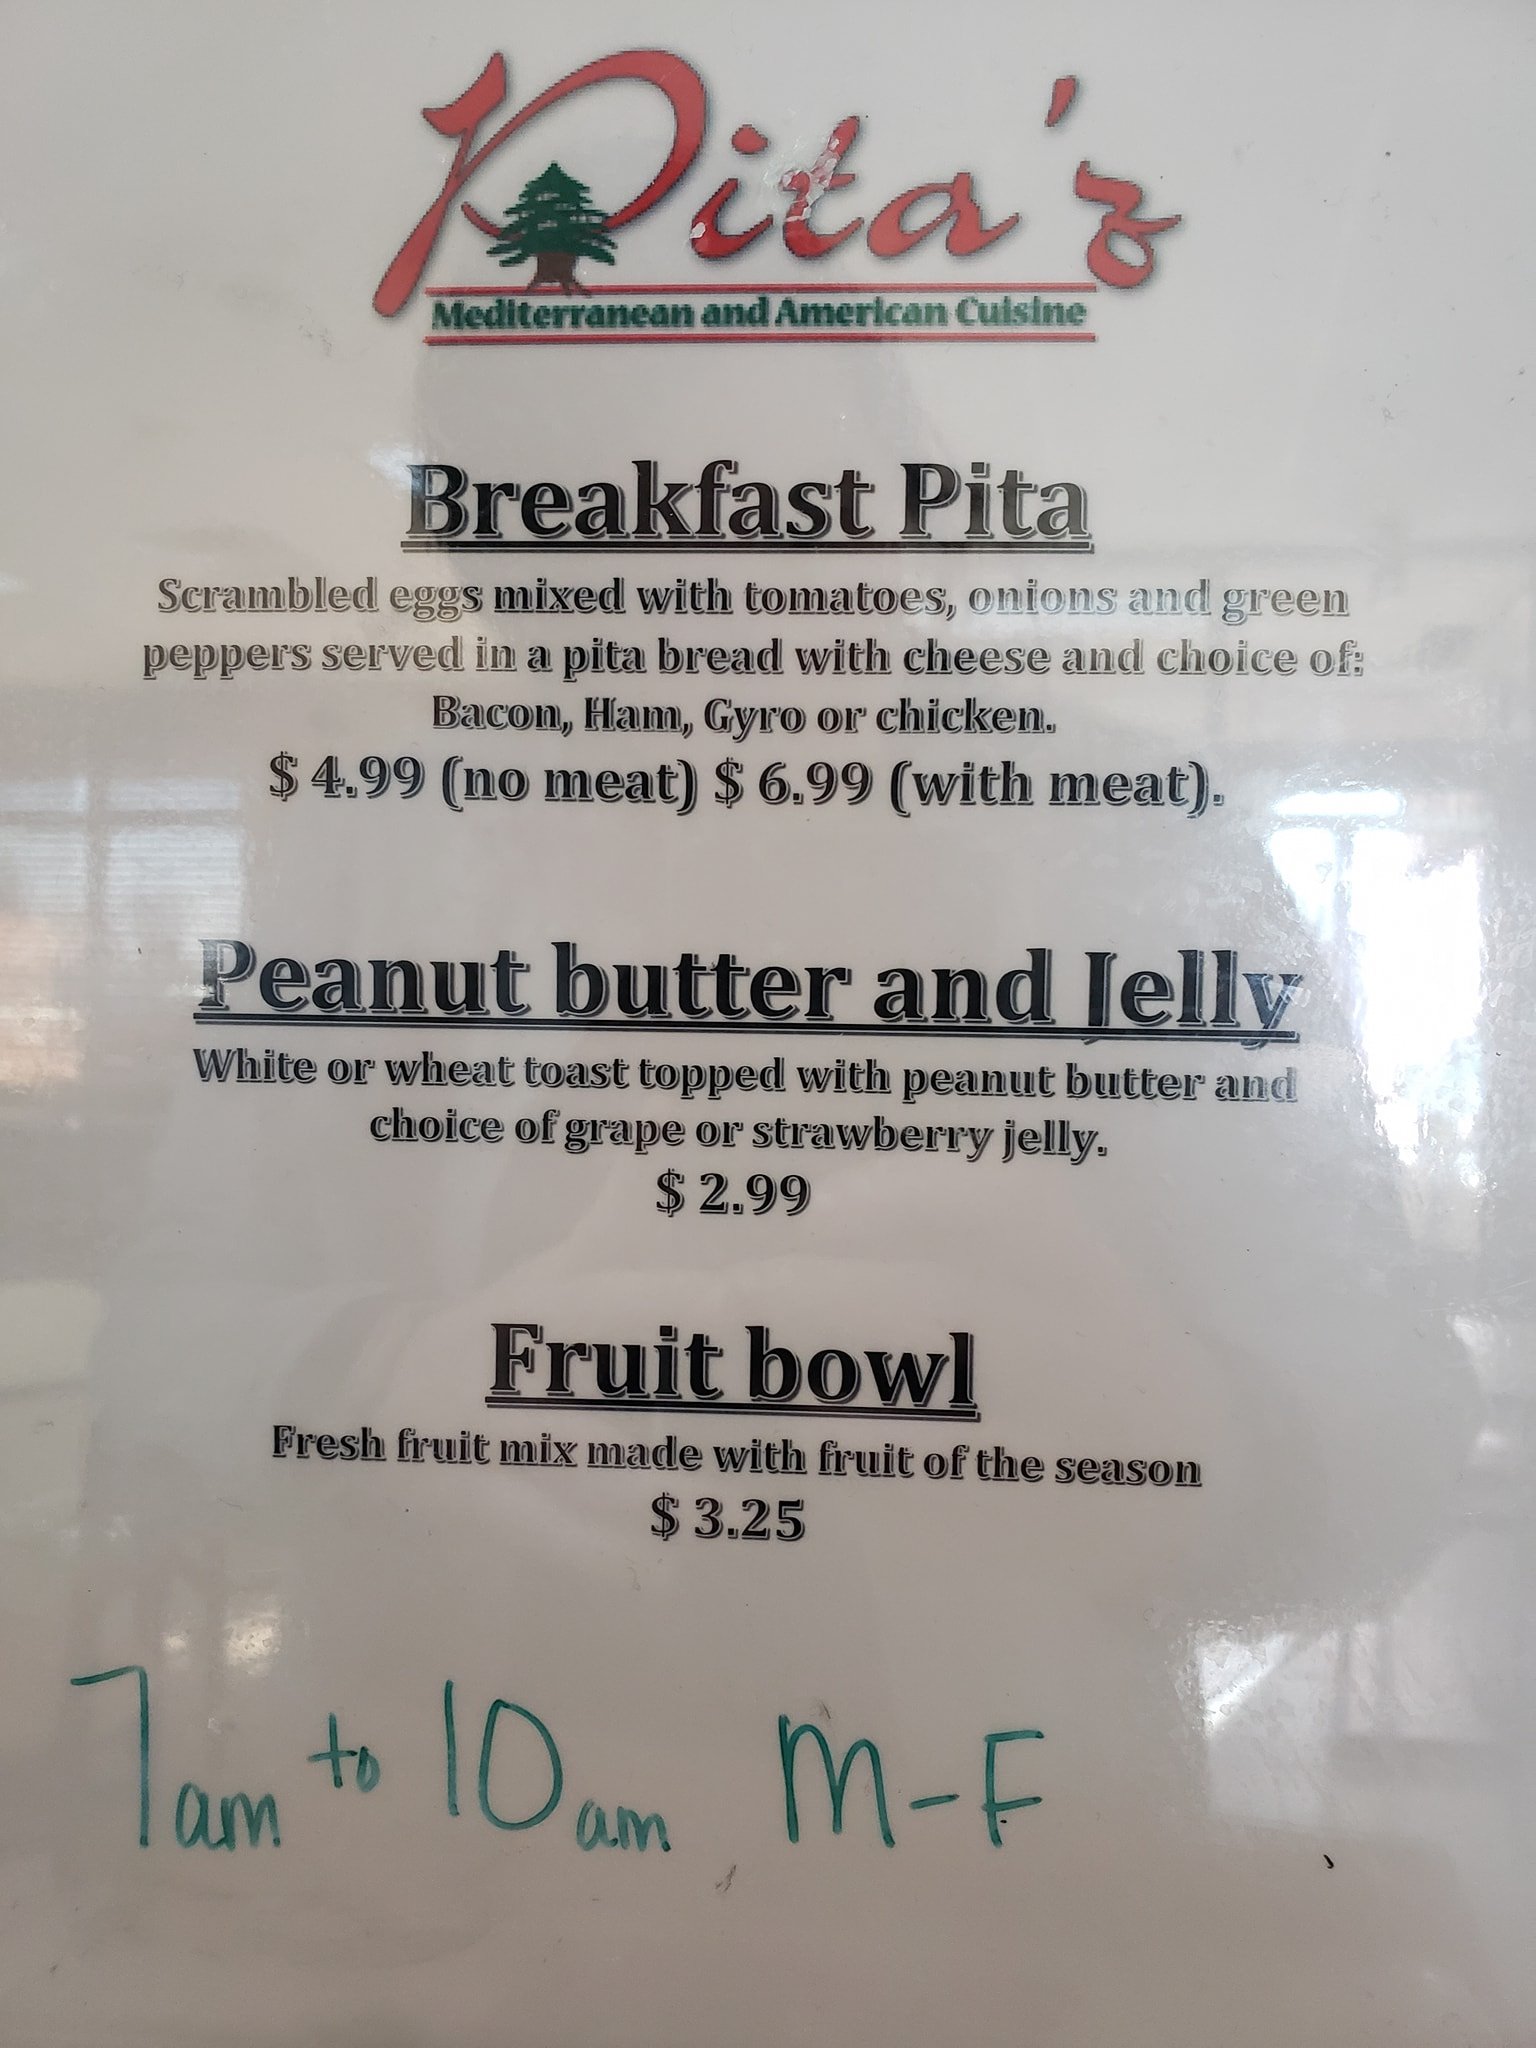 Pita'z
Mediterranean and American Cuisine
Breakfast Pita
Scrambled eggs mixed with tomatoes, onions and green
peppers served in a pita bread with cheese and choice of:
Bacon, Ham, Gyro or chicken.
$ 4.99 (no meat) $ 6.99 (with meat).
Peanut butter and Jelly
White or wheat toast topped with peanut butter and
choice of grape or strawberry jelly.
$ 2.99
Fruit bowl
Fresh fruit mix made with fruit of the season
$ 3.25
7am to 10am M-F